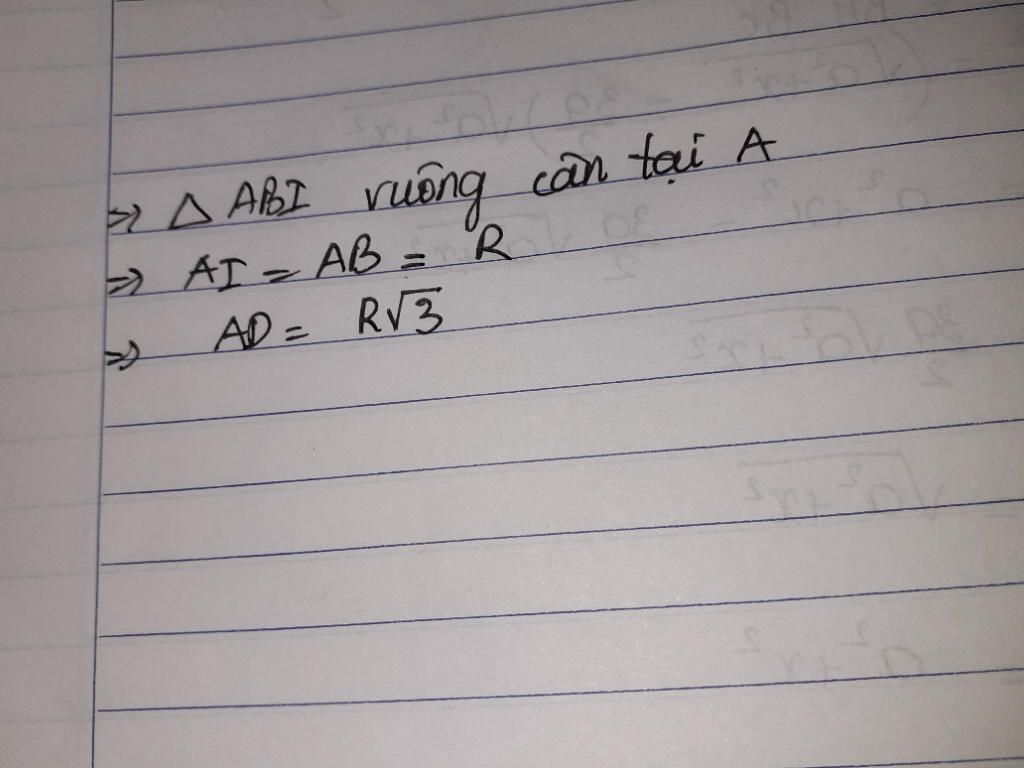 => △ ABI vuông cân tại A
=> AI = AB = R
=> AD = R√3